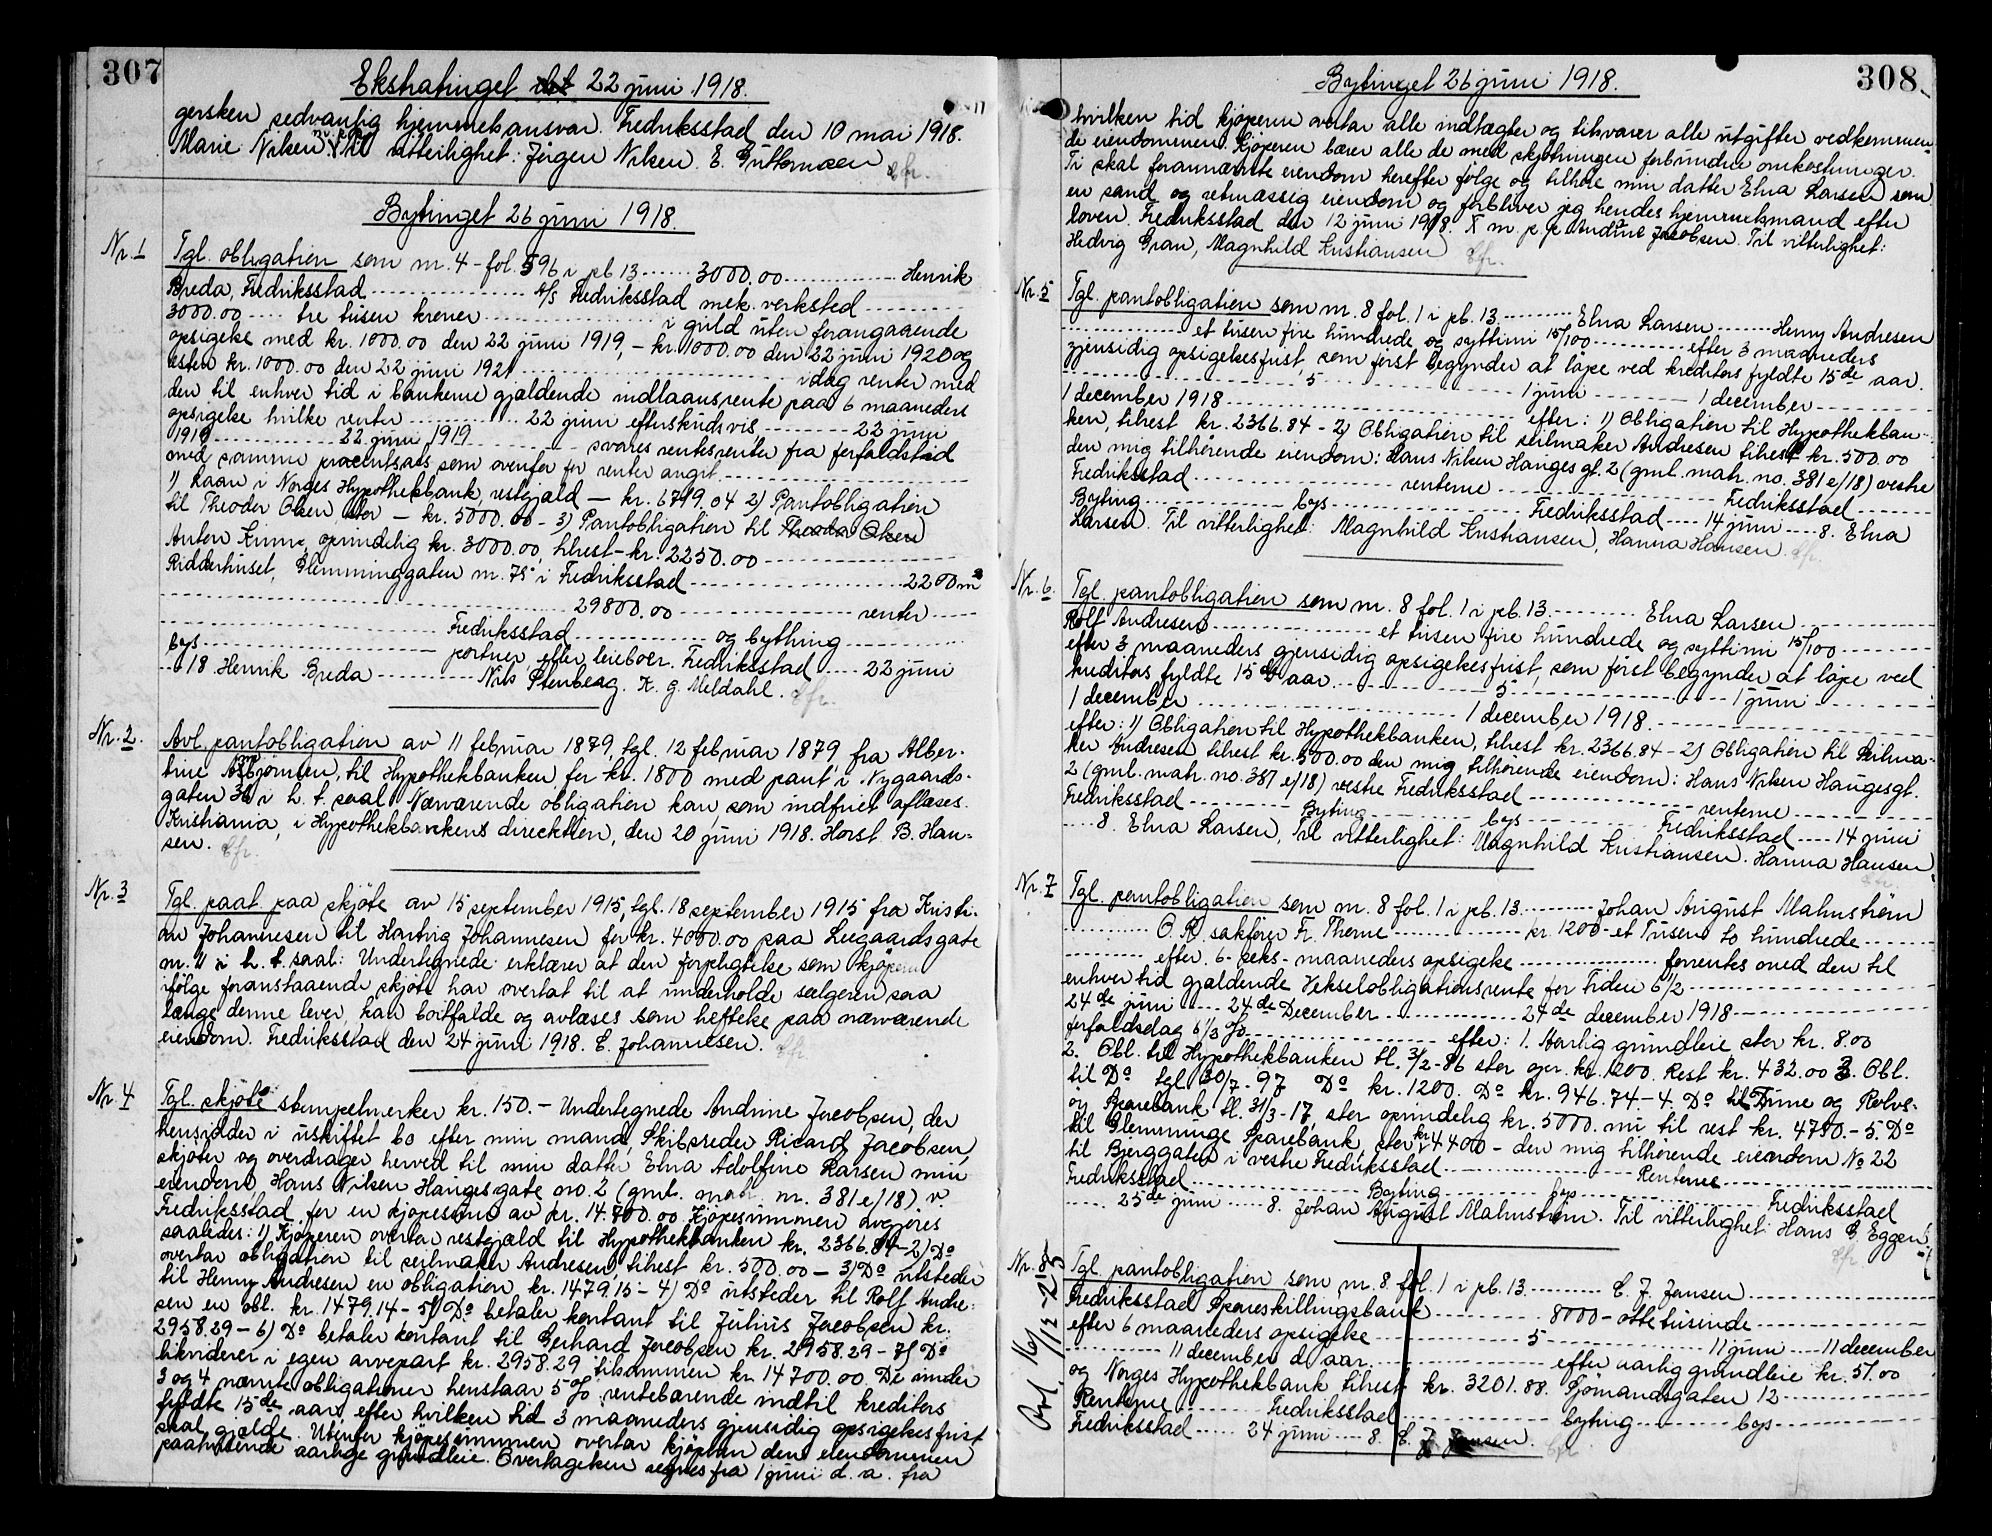 307
Ekstratinget det 22 juni 1918.
gersken sedvanlig hjemmelsansvar. Fredriksstad den 10 mai 1918.
Marie Nilsen m.p.p. Til vitterlighet: Jørgen Nilsen. E. Guttormsen
Bytinget 26 juni 1918.
Nr. 1
Tgl. obligation som nr. 4 - fol. 596 i pb 13 ...... 3000.00 ............ Henrik
Breda, Fredriksstad ............ A/S Fredriksstad mek. verksted ............
3000.00 ..... tre tusen kroner ............ i guld uten forangaaende
opsigelse med kr. 1000.00 den 22 juni 1919, - kr. 1000.00 den 22 juni 1920 og
resten kr. 1000.00 den 22 juni 1921 ............ idag renter med
den til enhver tid i bankerne gjældende indlaansrente paa 6 maaneders
opsigelse hvilke renter ............ 22 juni efterskudsvis ......... 22 juni
1919 ............ 22 juni 1919 ............ svares rentesrenter fra forfaldstid
med samme procentsats som ovenfor for renter angit ............
1) Laan i Norges Hypothekbank, restgjæld - kr. 6799.04 2) Pantobligation
til Theodor Olsen stor - kr. 5000.00 - 3) Pantobligation til Theodor Olsen
Anton Kinne, oprindelig kr. 3000.00, tilrest - kr. 2250.00 ............
Ridderhuset, Glemminggaten nr. 75 i Fredriksstad ............ 2200 m²
............ 29800.00 ............ renter ......
............ Fredriksstad ............ og bything ............
bys ............ portner, efter leieboer. Fredriksstad ...... 22 juni
...18 Henrik Breda ............ Nils Stenberg. K. G. Meldahl.
Nr. 2.
Avl. pantobligation av 11 februar 1879, tgl. 12 februar 1879 fra Alber-
tine Asbjørnsen, til Hypothekbanken for kr. 1800 med pant i Nygaards-
gaten 36 i h. t. saal. Nærværende obligation kan, som indfriet aflæses.
Kristiania, i Hypothekbankens direcktion, den 20 juni 1918. Horst. B. Han-
sen.
Nr. 3
Tgl. paat. paa skjøte av 15 september 1915, tgl. 18 september 1915 fra Kristi-
an Johannesen til Hartvig Johannesen for kr. 4000.00 paa Leegaardsgate
nr. 11 i h. t. saal: Undertegnede erklærer at den forpligtelse som kjøperen
ifølge foranstaaende skjøte har overtat til at underholde sælgeren saa
længe denne lever, kan bortfalde og avlæses som heftelse paa nærværende
eiendom. Fredriksstad den 24 juni 1918. C. Johannesen.
Nr. 4
Tgl. skjøte stempelmerker kr. 150. - Undertegnede Andrine Jacobsen, der
hensidder i uskiftet bo efter min mand, Skibsreder Ricard Jacobsen,
skjøter og overdrager herved til min datter Elna Adolfine Larsen min
eiendom Hans Nilsen Haugesgate no. 2 (gml. matr. nr. 381e/18) v.
Fredriksstad for en kjøpesum av kr. 14.700.00 Kjøpesummen avgjøres
saaledes: 1) Kjøperen overtar restgjæld til Hypothekbanken kr. 2366.84 - 2) Do
overtar obligation til seilmaker Andresen, tilrest kr. 500.00 - 3) Do utsteder
til Henny Andresen en obligation kr. 1479.15 - 4) Do utsteder til Rolf Andre-
sen en obl. kr. 1479.14 - 5) Do betaler kontant til Julius Jacobsen kr.
2958.29 - 6) Do betaler kontant til Gerhard Jacobsen kr. 2958.29 - 7) Do
likviderer i egen arvepart kr. 2958.29 tilsammen kr. 14700.00. De under
3 og 4 nævnte obligationer henstaar 5% rentebærende indtil kreditors
fyldte 15de aar, efter hvilken tid 3 maaneders gjensidig opsigelsesfrist
skal gjælde. Utenfor kjøpesummen overtar kjøperen den eiendommen
paahvilende aarlige grundleie. Overtagelsen regnes fra 1 juni d. a. fra
308
Bytinget 26 juni 1918.
hvilken tid kjøperen overtar alle indtægter og tilsvarer alle utgifter vedkommen-
de eiendommen. Kjøperen bærer alle de med skjøtningen forbundne omkostninger.
Ti skal forannævnte eiendom herefter følge og tilhøre min datter Elna Larsen som
en sand og retmæssig eiendom og forbliver jeg hendes hjemmelsmand efter
loven. Fredriksstad den 12 juni 1918. X m. p. p. Andrine Jacobsen. Til vitterlighet:
Hedvig Gran, Magnhild Kristiansen
Nr. 5
Tgl. pantobligation som nr. 8 fol. 1 i pb. 13 ......... Elna Larsen ...... Henny Andresen
............ et tusen fire hundrede og syttinni 15/100 ......... efter 3 maaneders
gjensidig opsigelsesfrist, som først begynder at løpe ved kreditors fyldte 15de aar.
............ 5 ............ 1 juni ......... 1 december ............
1 december 1918 ............ efter: 1) Obligation til Hypothekban-
ken, tilrest kr. 2366.84 - 2) Obligation til seilmaker Andresen tilrest kr. 500.00
den mig tilhørende eiendom: Hans Nilsen Hauges gt. 2 (gml. matr. no. 381e/18) vestre
Fredriksstad ............ renterne ............ Fredriksstad ......
Byting ............ bys ............ Fredriksstad ..... 14 juni ..... 8. Elna
Larsen. Til vitterlighet: Magnhild Kristiansen, Hanna Hansen.
Nr. 6.
Tgl. pantobligation som nr. 8 fol. 1 i pb. 13 ......... Elna Larsen ............
Rolf Andresen ............ et tusen fire hundrede og syttinni 15/100 .........
efter 3 maaneders gjensidig opsigelsesfrist, som først begynder at løpe ved
kreditors fyldte 15de aar ............ 5 ............ 1 juni ......
1 december ............ 1 december 1918 ............
efter: 1) Obligation til Hypothekbanken, tilrest kr. 2366.84 - 2) Obligation til Seilma-
ker Andresen tilrest kr. 500.00 den mig tilhørende eiendom: Hans Nilsen Haugesgt.
2 (gml. matr. no. 387 e/18) vestre Fredriksstad ............ renterne ............
Fredriksstad ............ Byting ............ bys ............ Fredriksstad ..... 14 juni
..... 8. Elna Larsen, Til vitterlighet: Magnhild Kristiansen. Hanna Hansen
Nr. 7
Tgl. pantobligation som nr. 8 fol. 1 i pb. 13 ......... Johan August Malmstrøm
............ O. R. sakfører Fr. Thorne ............ kr 1200 - et Tusen to hundrede ......
............ efter 6 - seks - maaneders opsigelse ............ forrentes med den til
enhver tid gjældende Vekselobligationsrente for Tiden 6 1/2 ............
24de juni ..... 24de December ............ 24de december 1918 ............
forfaldsdag 6 1/3 % ............ efter: 1. Aarlig grundleie stor kr. 8.00
2. Obl. til Hypothekbanken tl. 3/2-86 stor opr. kr. 1200. Rest kr. 432.00 3. Obl.
til Do tgl 30/7-97 Do kr. 1200. Do kr. 946.74 - 4. Do til Tune og Rolvs-
øy Sparebank tl. 31/3-17, stor oprindelig kr. 5000. nu til rest kr. 4750. - 5. Do
til Glemminge Sparebank, stor kr 4400 - den mig tilhørende eiendom No 22
til Bjerggaten i vestre Fredriksstad ............ Renterne ............
Fredriksstad ............ Byting ............ bys ............ Fredriksstad
..... 25de juni ..... 8. Johan August Malmstrøm. Til vitterlighet: Hans G. Eggen
Nr. 8
Avl. 16/12-213
Tgl. pantobligation som nr. 8 fol. 1 i pb. 13 ......... C. J. Jensen ............
Fredriksstad Spareskillingsbank ............ 8000 - otte tusinde ............
efter 6 maaneders opsigelse ............ 5 ............ 11 juni ..... 11 december
............ 11 december d. aar ............ efter aarlig grundleie kr. 51.00
og Norges Hypothekbank tilrest kr. 3201.88. Sjømandsgaten 12 ............
Renterne ............ Fredriksstad ............ byting ............ bys ......
Fredriksstad ...... 24 juni ..... 8. C. J. Jensen.